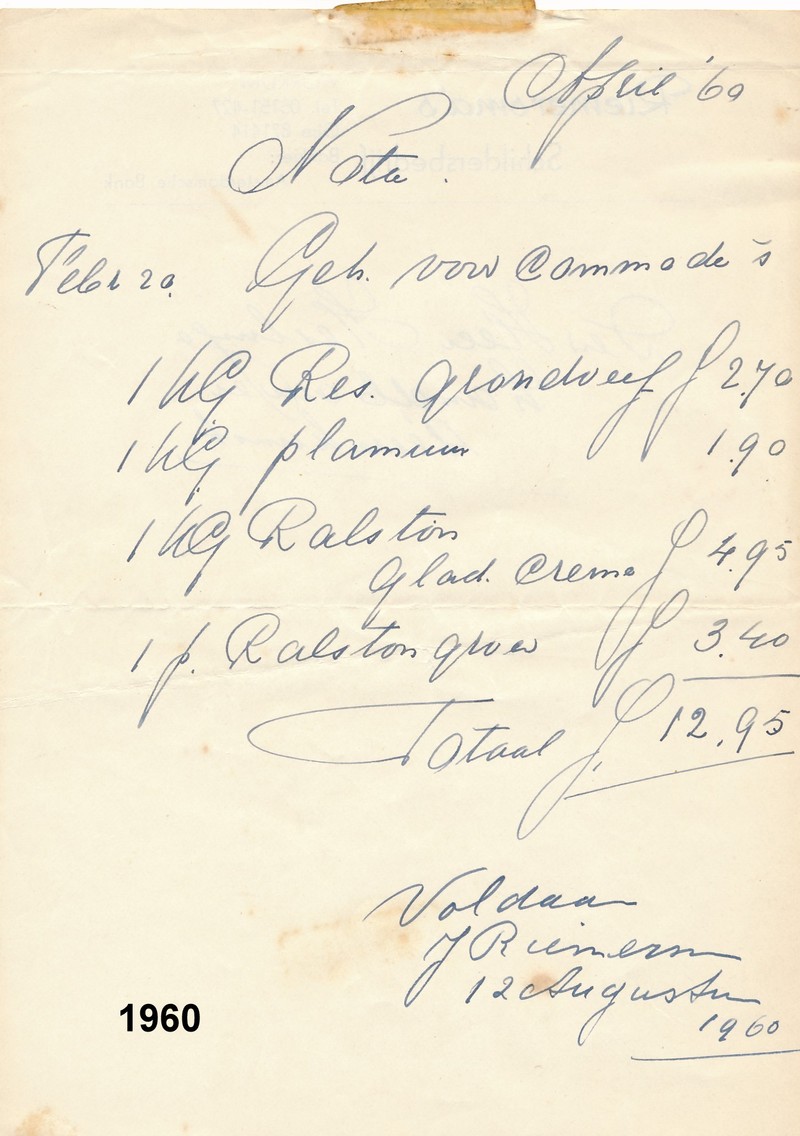 April '60
Nota.
Febr 20. Geh. voor Commode's
1 KG Res. grondverf f 2.70
1 KG plamuur 1.90
1 KG Ralston
Glad. Creme f 4.95
1 p. Ralston groen f 3.40
Totaal f. 12.95
Voldaan
J Riemersma
12 Augustus
1960
1960